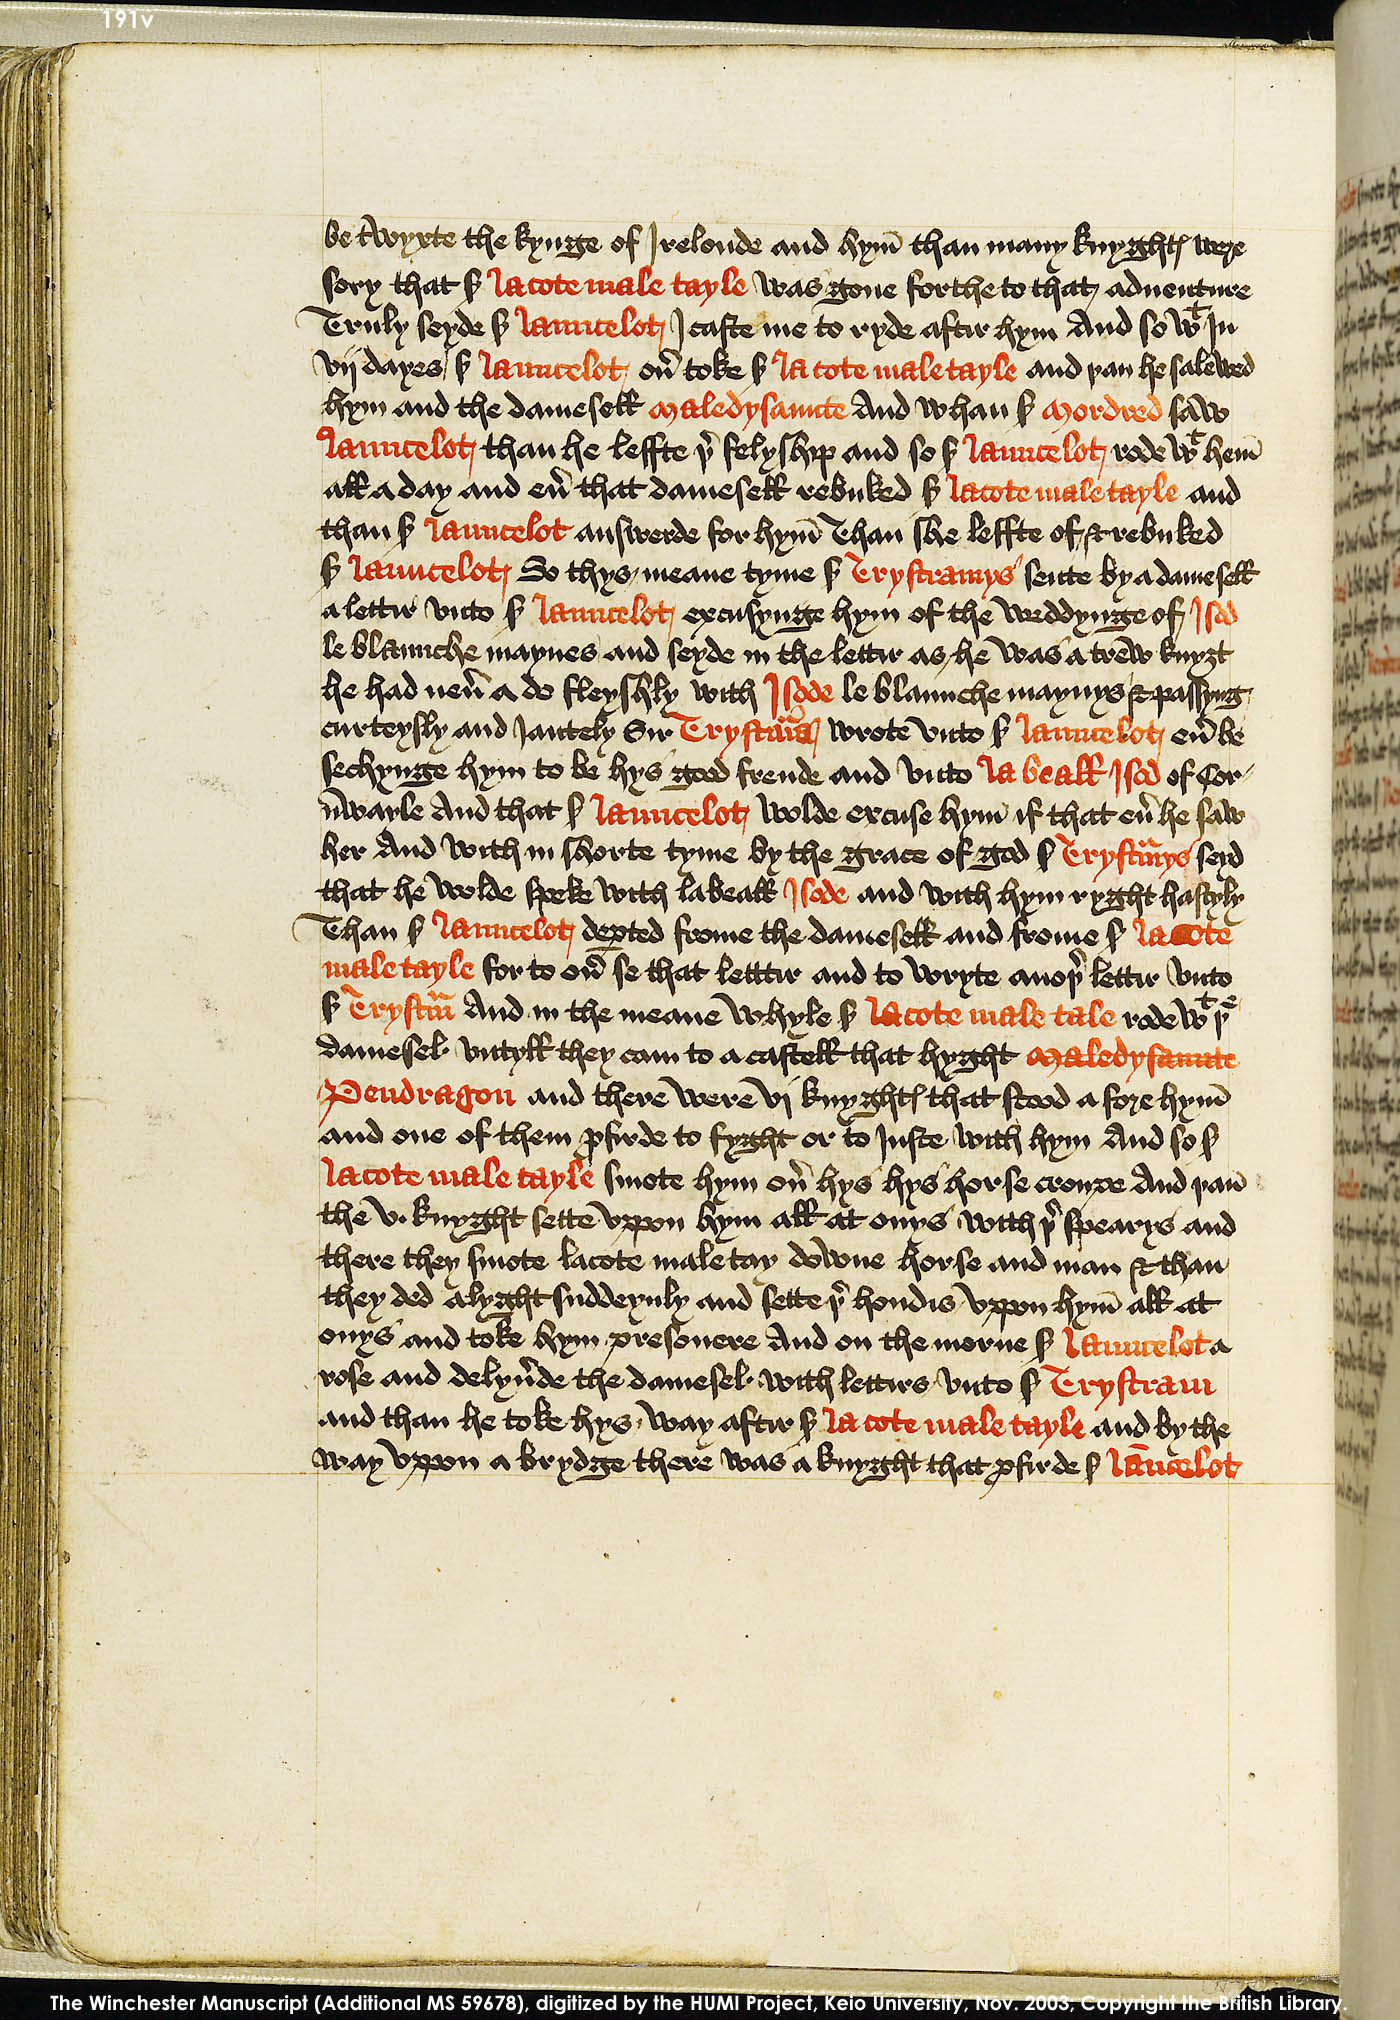 191v
be twyxte the kynge of Irelonde and hym̄ than many knyghtꝭ were
sory that ẜ La cote male tayle was gone forthe to that adventure
Truly seyde ẜ Launcelot I caste me to ryde aftir hym And so wᵗ In
vij dayes ẜ Launcelot ov̉ toke ẜ La cote male tayle and þan he salewed
hym and the damesell Maledysaunte And whan ẜ Mordred saw
Launcelot than he leffte þ̉ felyshyp and so ẜ Launcelot rode wᵗ hem̄
all a day and ev̉ that damesell rebuked ẜ La cote male tayle and
than ẜ Launcelot answerde for hym̄ Than she leffte of & rebuked
ẜ Launcelot So thys meane tyme ẜ Trystramys sente by a damesell
a lettir vnto ẜ Launcelot excusynge hym of the weddynge of Isod
le blaunche maynes and seyde in the lettir as he was a trew knyȝt
he had nev̉ a do fleyshly with Isode le blaunche maynys & passyng
curteysly and Jantely Sir Trystrams wrote vnto ẜ Launcelot ev̉ be
sechynge hym to be hys good frende and vnto La beall Isod of Cor
nwayle And that ẜ Launcelot wolde excuse hym if that ev̉ he saw
her And with in shorte tyme by the grace of god ẜ Trystᵃmys seyd
that he wolde speke with La beall Isode and with hym ryght hastyly
Than ẜ Launcelot deꝑted frome the damesell and frome ẜ La cote
male tayle for to ov̉ se that letttir and to wryte anoþ̉ lettir vnto
ẜ Trystᵃm And in the meane whyle ẜ La cote male tale rode wᵗ þᵉ
damesel vntyll they cam to a castell that hyght Maledysaunte
Pendragon and there were vj knyghtꝭ that stood a fore hym̄
and one of them ꝓfirde to fyght or to Juste with hym And so ẜ
La cote male tayle smote hym ov̉ hys hys horse croupe And þan̄
the v. knyght sette vppon hym all at onys with þ̉ spearys and
there they smote La cote male tay downe horse and man & than
they ded alyght suddeynly and sette þ̉ hondis vppon hym̄ all at
onys and toke hym presonere And on the morne ẜ Launcelot a
rose and delyv̉de the damesel with lettirs vnto ẜ Trystram
and than he toke hys way aftir ẜ La cote male tayle and by the
way vppon a brydge there was a knyght that ꝓfirde ẜ Lāncelot
The Winchester Manuscript (Additional MS 59678), digitized by the HUMI Project, Keio University, Nov. 2003, Copyright the British Library.